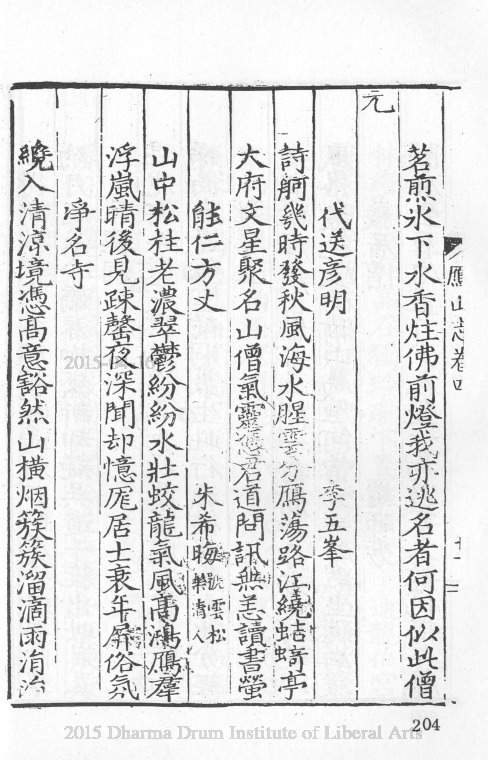 鴈山志卷四
十一
茗煎氷下水香炷佛前燈我亦逃名者何因似此僧
元
代送彦明
李五峯
詩舸幾時發秋風海水腥雲分鴈蕩路江繞蛣蜣亭
大府文星聚名山僧氣靈憑君道問訊無恙讀書螢
能仁方丈
朱希晦 號雲松 樂清人
山中松桂老濃翠鬱紛紛水壯蛟龍氣風高鴻鴈羣
浮嵐晴後見疎磬夜深聞却憶厖居士衰年屏俗氛
淨名寺
纔入清涼境憑高意豁然山橫烟簇簇溜滴雨涓涓
204
2015-04-16
2015 Dharma Drum Institute of Liberal Arts